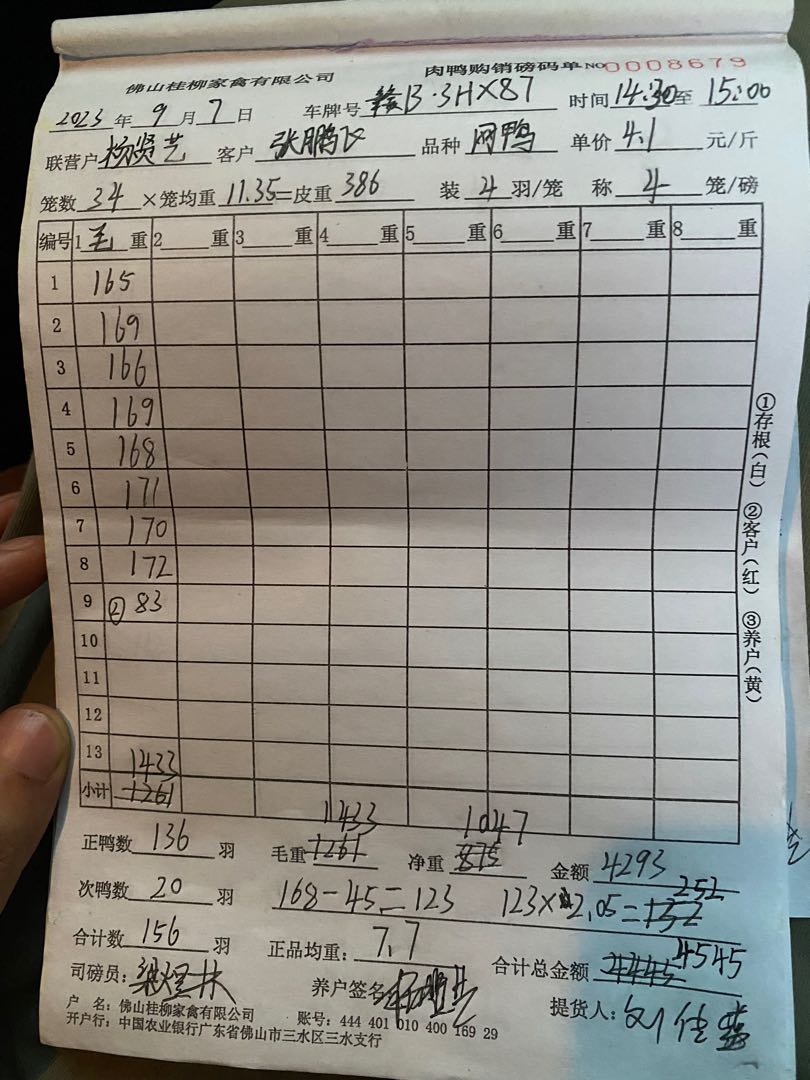 佛山桂柳家禽有限公司 肉鸭购销磅码单 No 0008679
2023年 9 月 7 日 车牌号 赣B·3HX87 时间 14:30 至 15:00
联营户 杨贤艺 客户 张鹏飞 品种 网鸭 单价 4.1 元/斤
笼数 34 ×笼均重 11.35 =皮重 386 装 4 羽/笼 称 4 笼/磅
编号 1 毛 重 2 重 3 重 4 重 5 重 6 重 7 重 8 重
1 165
2 169
3 166
4 169
5 168
6 171
7 170
8 172
9 ② 83
10
11
12
13
1433
小计 1261
①存根(白) ②客户(红) ③养户(黄)
1433 1047
正鸭数 136 羽 毛重 1261 净重 875 金额 4293
252
次鸭数 20 羽 168-45=123 123×2.05=152
合计数 156 羽 正品均重: 7.7 合计总金额 4445 4545
司磅员: 养户签名 提货人: 刘佳
户 名: 佛山桂柳家禽有限公司 账号: 444 401 010 400 169 29
开户行: 中国农业银行广东省佛山市三水区三水支行